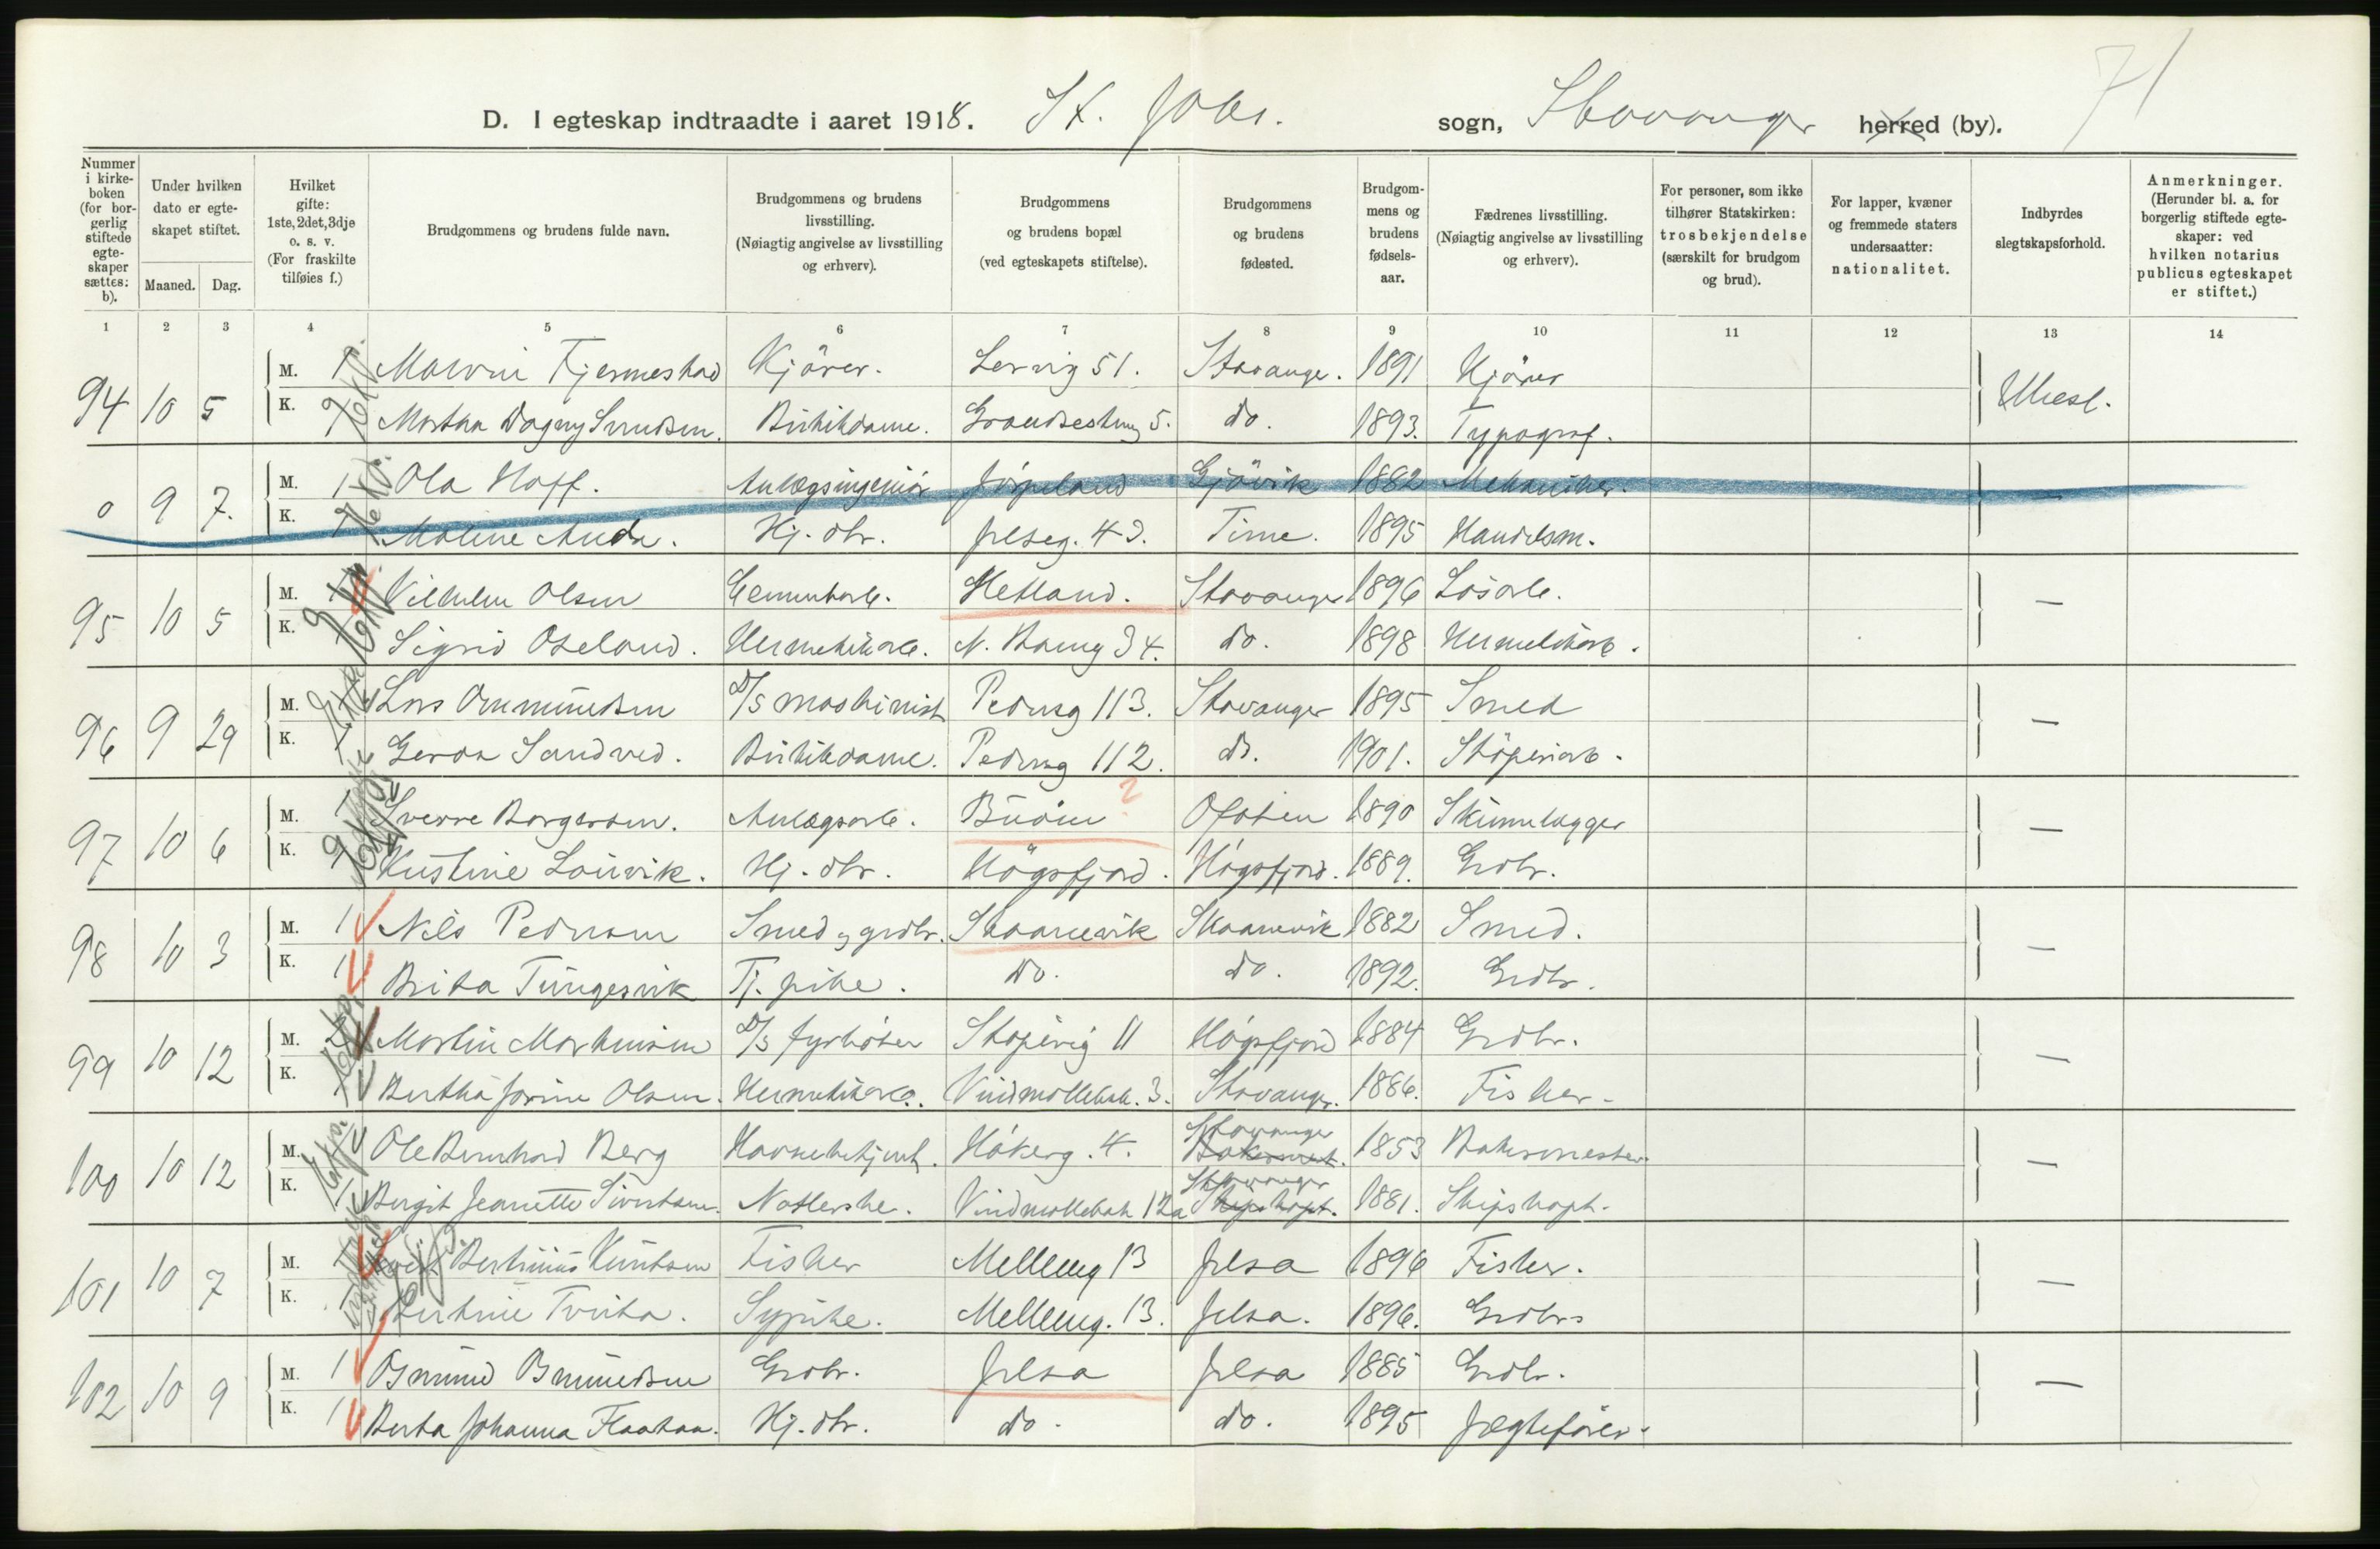 71
D. I egteskap indtraadte i aaret 1918. St. Johs. sogn, Stavanger herred (by).
Nummer i kirkeboken (for borgerlig stiftede egteskaper sættes: b).
Under hvilken dato er egteskapet stiftet.
Maaned. Dag.
Hvilket gifte: 1ste, 2det, 3dje o. s. v. (For fraskilte tilføies f.)
Brudgommens og brudens fulde navn.
Brudgommens og brudens livsstilling. (Nøiagtig angivelse av livsstilling og erhverv).
Brudgommens og brudens bopæl (ved egteskapets stiftelse).
Brudgommens og brudens fødested.
Brudgommens og brudens fødselsaar.
Fædrenes livsstilling. (Nøiagtig angivelse av livsstilling og erhverv).
For personer, som ikke tilhører Statskirken: trosbekjendelse (særskilt for brudgom og brud).
For lapper, kvæner og fremmede staters undersaatter: nationalitet.
Indbyrdes slegtskapsforhold.
Anmerkninger. (Herunder bl. a. for borgerlig stiftede egteskaper: ved hvilken notarius publicus egteskapet er stiftet.)
1 2 3 4 5 6 7 8 9 10 11 12 13 14
94 10 5 M. 1 Malvin Tjemeslad Kjører. Lervig 51. Stavanger. 1891 Kjører Ubesl.
K. 1 Martha Dagny Svendsen. Butikdame. 5. do. 1893. Typograf.
0 9 7. M. 1 Ola Hoff. Anlægsingeniör Jörpeland Gjövik 1882 Mekaniker. —
K. 1 Maline Auda. Hj. dtr. Jelseg. 43. Time. 1895 Handelsm.
95 10 5 M. 1 Vilhelm Olsen Cementarb. Hetland. Stavanger 1896 Løsarb. —
K. Sigrid Oseland. Hermetikarb. N. Baneg 34. do. 1898 Hermetikarb.
96 9 29 M. 1 Lars Ommundsen D/S maskinist Pedersg 113. Stavanger 1895 Smed —
K. 1 Gerda Sandved. Butikdame. Pedersg 112. do. 1901. Støperiarb.
97 10 6 M. 1 Sverre Borgersen. Anlægsarb. Buöen ? Ofoten 1890 Skinnelægger —
K. Kristine Lauvik. Hj. dtr. Högsfjord. Högsfjord. 1889. Grdbr.
98 10 3 M. 1 Nils Pedersen Smed og grdbr. Skaanevik Skaanevik 1882 Smed. —
K. 1 Brita Tungesvik Tj. pike. do. do. 1892. Grdbr.
99 10 12 M. 2 Martin Martinsen D/S fyrbøter Støperig 11 Högsfjord 1884 Grdbr. —
K. 1 Bertha Jorine Olsen. Hermetikarb. Vindmøllebak. 3. Stavanger. 1886. Fisker.
100 10 12 M. Ole Bernhard Berg Havnebetjent. Håkerg. 4. Stavanger 1853 Bakermester —
K. 1 Bergit Jeanette Sivertsen. Notlerske. Vindmøllebak 12a Stavanger 1881. Skipskapt.
101 10 7 M. 1 Bertinius Knutsen Fisker Melleug 13 Jelsa 1896 Fisker. —
K. Bertine Tveita. Sypike. Melleug. 13. Jelsa. 1896. Grdbr.
102 10 9 M. 1 Osmund Osmundsen Grdbr. Jelsa Jelsa 1885 Grdbr. —
K. 1 Berta Johanna Flaataa. Hj. dtr. do. do. 1895 Jægtefører.